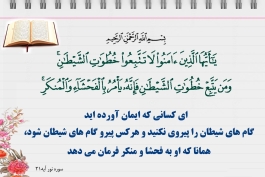 بِسْمِ اللَّهِ الرَّحْمَٰنِ الرَّحِيمِ
يَٰٓأَيُّهَا ٱلَّذِينَ ءَامَنُوا۟ لَا تَتَّبِعُوا۟ خُطُوَٰتِ ٱلشَّيْطَٰنِ ۚ
وَمَن يَتَّبِعْ خُطُوَٰتِ ٱلشَّيْطَٰنِ فَإِنَّهُۥ يَأْمُرُ بِٱلْفَحْشَآءِ وَٱلْمُنكَرِ ۚ
ای کسانی که ایمان آورده اید
گام های شیطان را پیروی نکنید و هرکس پیرو گام های شیطان شود،
همانا که او به فحشا و منکر فرمان می دهد
سوره نور آیه ۲۱